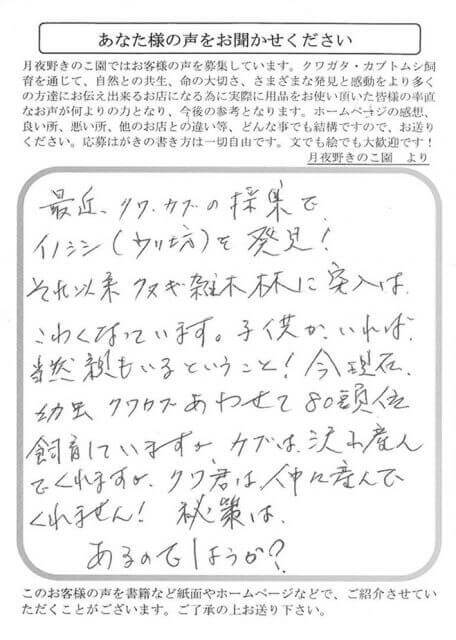 あなた様の声をお聞かせください
月夜野きのこ園ではお客様の声を募集しています。クワガタ・カブトムシ飼
育を通じて、自然との共生、命の大切さ、さまざまな発見と感動をより多く
の方達にお伝え出来るお店になる為に実際に用品をお使い頂いた皆様の率直
なお声が何よりの力となり、今後の参考となります。ホームページの感想、
良い所、悪い所、他のお店との違い等、どんな事でも結構ですので、お送り
ください。応募はがきの書き方は一切自由です。文でも絵でも大歓迎です！
月夜野きのこ園　より
最近、クワ、カブの採集で、
イノシシ（ウリ坊）を発見！
それ以来クヌギ雑木林に突入は、
こわくなっています。子供が、いれば、
当然親もいるということ！今現在、
幼虫 クワカブ あわせて80頭位
飼育していますが、カブは、沢山産ん
でくれますが、クワ君は、仲々産んで
くれません！ 秘策は、
あるのでしょうか？
このお客様の声を書籍など紙面やホームページなどで、ご紹介させてい
ただくことがございます。ご了承の上お送り下さい。